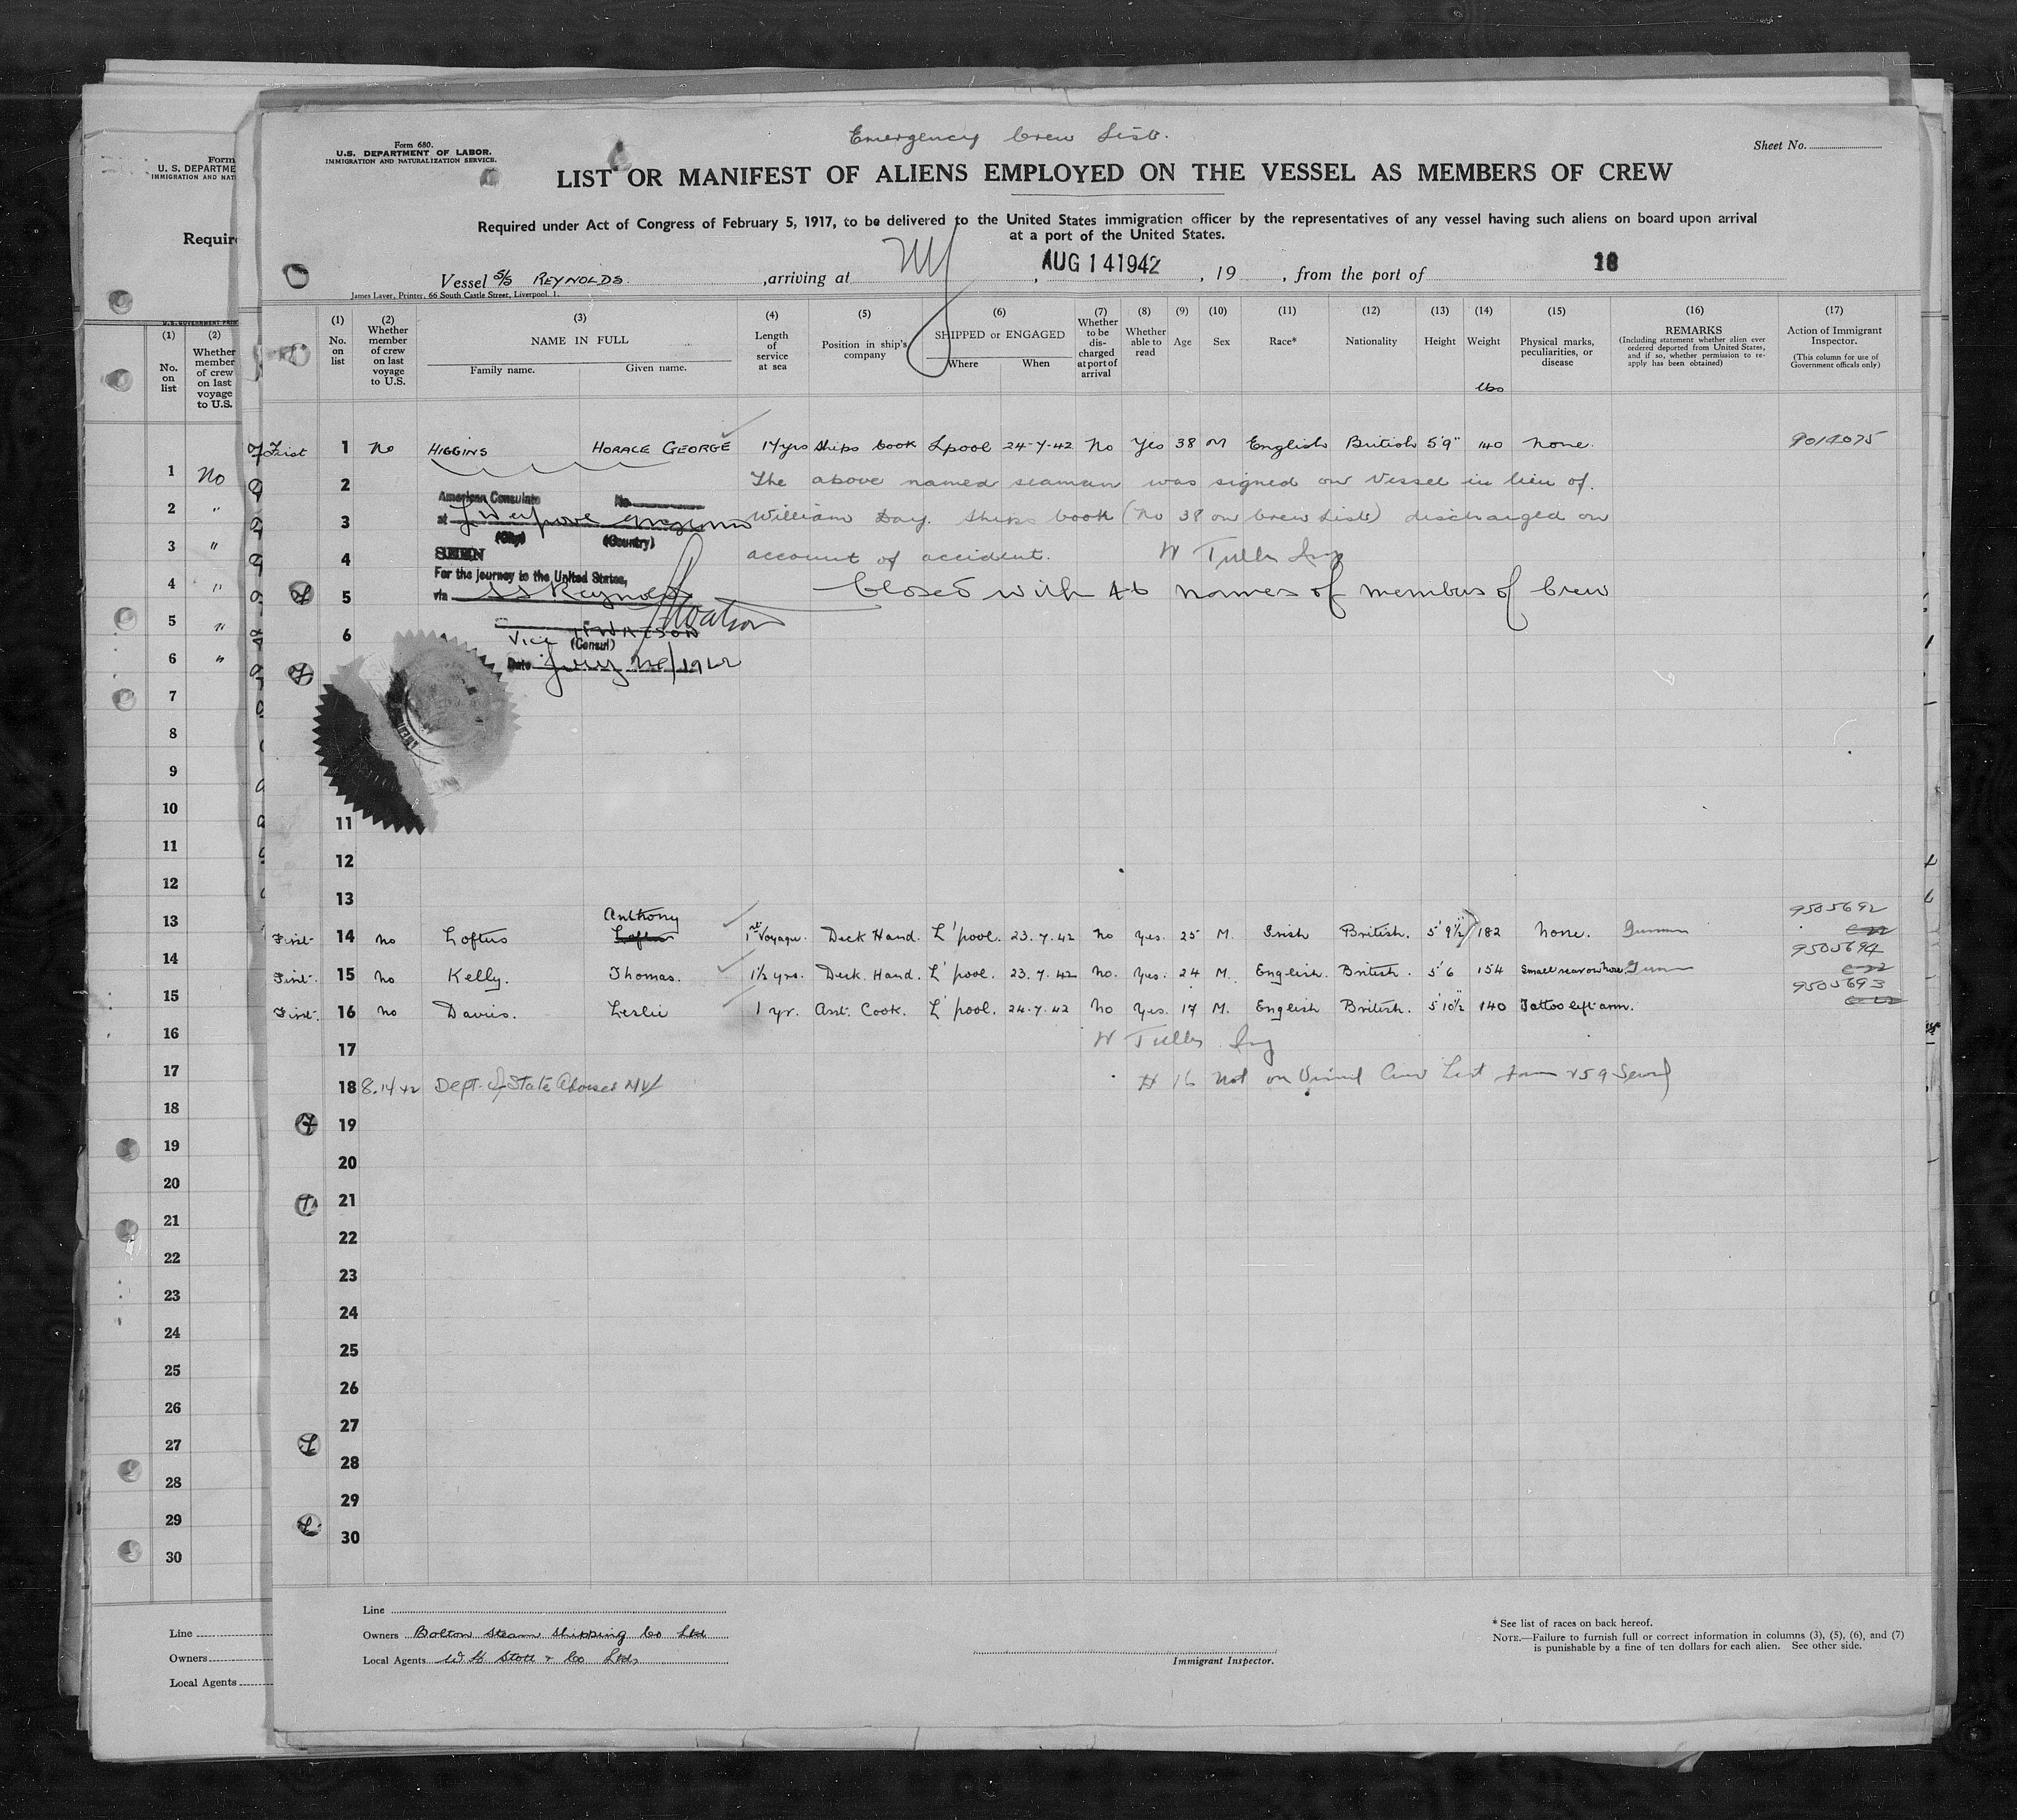 Emergency Crew List.
Form 680.
U.S. DEPARTMENT OF LABOR.
IMMIGRATION AND NATURALIZATION SERVICE.
Sheet No.
LIST OR MANIFEST OF ALIENS EMPLOYED ON THE VESSEL AS MEMBERS OF CREW
Required under Act of Congress of February 5, 1917, to be delivered to the United States immigration officer by the representatives of any vessel having such aliens on board upon arrival
at a port of the United States.
Vessel S/S REYNOLDS , arriving at NY , AUG 14 1942 , 19 , from the port of 18
James Laver, Printer, 66 South Castle Street, Liverpool. 1.
(1) No. on list
(2) Whether member of crew on last voyage to U.S.
(3) NAME IN FULL Family name. Given name.
(4) Length of service at sea
(5) Position in ship's company
(6) SHIPPED or ENGAGED Where When
(7) Whether to be dis-charged at port of arrival
(8) Whether able to read
(9) Age
(10) Sex
(11) Race*
(12) Nationality
(13) Height
(14) Weight lbs
(15) Physical marks, peculiarities, or disease
(16) REMARKS (Including statement whether alien ever ordered deported from United States, and if so, whether permission to re-apply has been obtained)
(17) Action of Immigrant Inspector. (This column for use of Government officials only)
First 1 No HIGGINS HORACE GEORGE 17 yrs Ships Cook L'pool 24-7-42 No Yes 38 M English British 5'9" 140 None. 9014075
2 The above named seaman was signed on Vessel in lieu of
American Consulate No
3 at Liverpool England William Day. Ships Cook (No 38 on Crew List) discharged on
(City) (Country)
4 SEEN account of accident.
For the journey to the United States,
5 via SS Reynolds Closed with 46 names of members of Crew
6 Vice WATSON
(Consul)
Date July 24/1942
11
12
13
9505692
14 First No Loftus Anthony Loftus 1st Voyage. Deck Hand. L'pool. 23.7.42 No Yes. 25 M. Irish British. 5'9½" 182 None. Gunner
9505694
15 First No Kelly. Thomas. 1½ yrs. Deck. Hand. L'pool. 23.7.42 No. Yes. 24 M. English. British. 5'6 154 Small scar on nose. Gunner
9505693
16 First. No Davies. Leslie 1 yr. Asst. Cook. L'pool. 24.7.42 No Yes. 17 M. English British. 5'10½" 140 Tattoo left arm.
17
18 8.14.42 Dept. of State Advised # 16 Not on Crew List
19
20
21
22
23
24
25
26
27
28
29
30
Line
Owners Bolton Steam Shipping Co Ltd
Local Agents W H Stott & Co Ltd.
Immigrant Inspector.
*See list of races on back hereof.
NOTE.—Failure to furnish full or correct information in columns (3), (5), (6), and (7)
is punishable by a fine of ten dollars for each alien. See other side.
Form
U. S. DEPARTME
IMMIGRATION AND NAT
Require
(1) No. on list
(2) Whether member of crew on last voyage to U.S.
1 No
2 "
3 "
4 "
5 "
6 "
7
8
9
10
11
12
13
14
15
16
17
18
19
20
21
22
23
24
25
26
27
28
29
30
Line
Owners
Local Agents